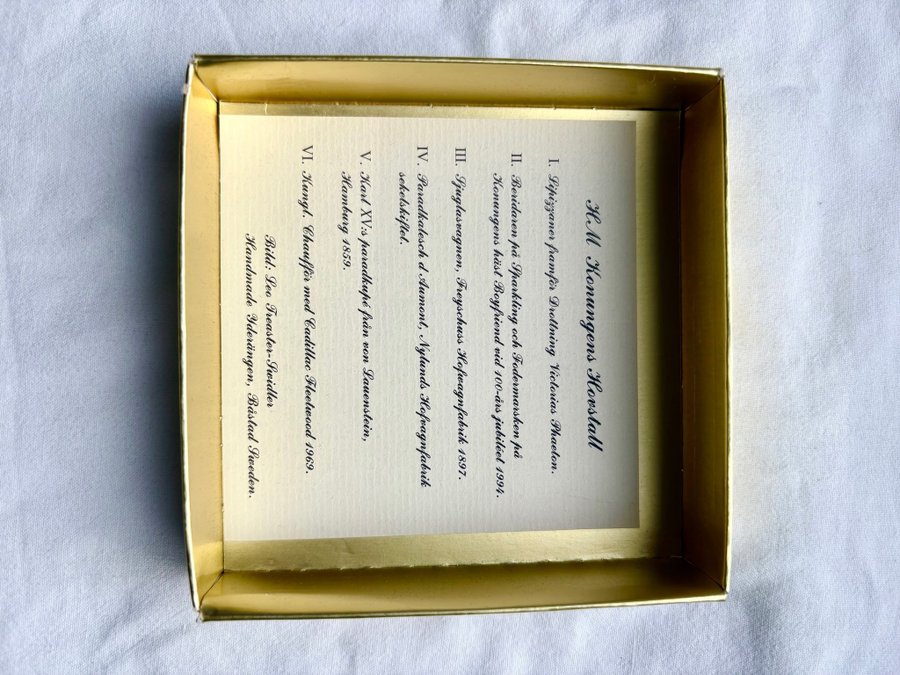 HM Konungens Hovstall
I. Lipizzaner framför Drottning Victorias Phaeton.
II. Beridaren på Sparkling och Fodermarsken på
Konungens häst Boyfriend vid 100-års jubiléet 1994.
III. Sjuglasvagnen, Freyschuss Hofvagnfabrik 1897.
IV. Paradkalesch d Aumont, Nylunds Hofvagnfabrik
sekelskiftet.
V. Karl XV:s paradkupé från von Lauenstein,
Hamburg 1859.
VI. Kungl. Chaufför med Cadillac Fleetwood 1969.
Bild: Leo Treaster-Swidler
Handmade Yderängen, Båstad Sweden.